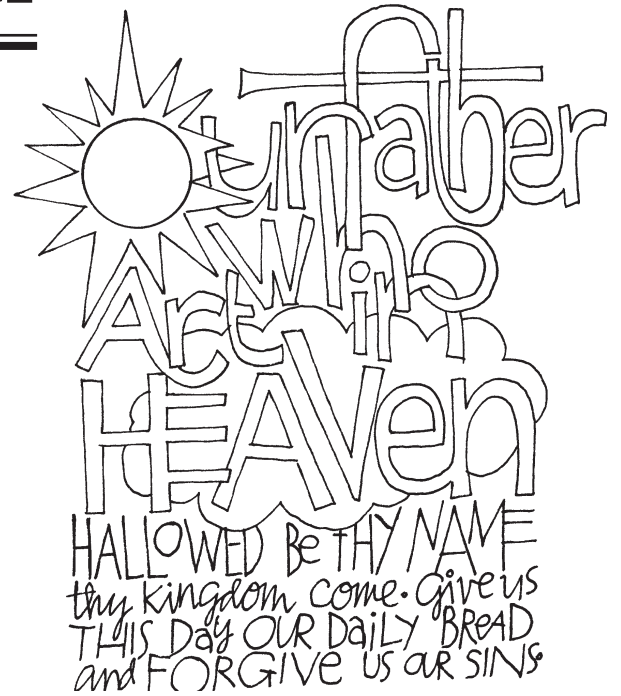 Our father
who
Art in
HEAVen
HALLOWED Be tHY NAME
thy kingdom come. Give us
THIS Day OUR DaiLY BReAD
and FORGIVe us OUR SINS.